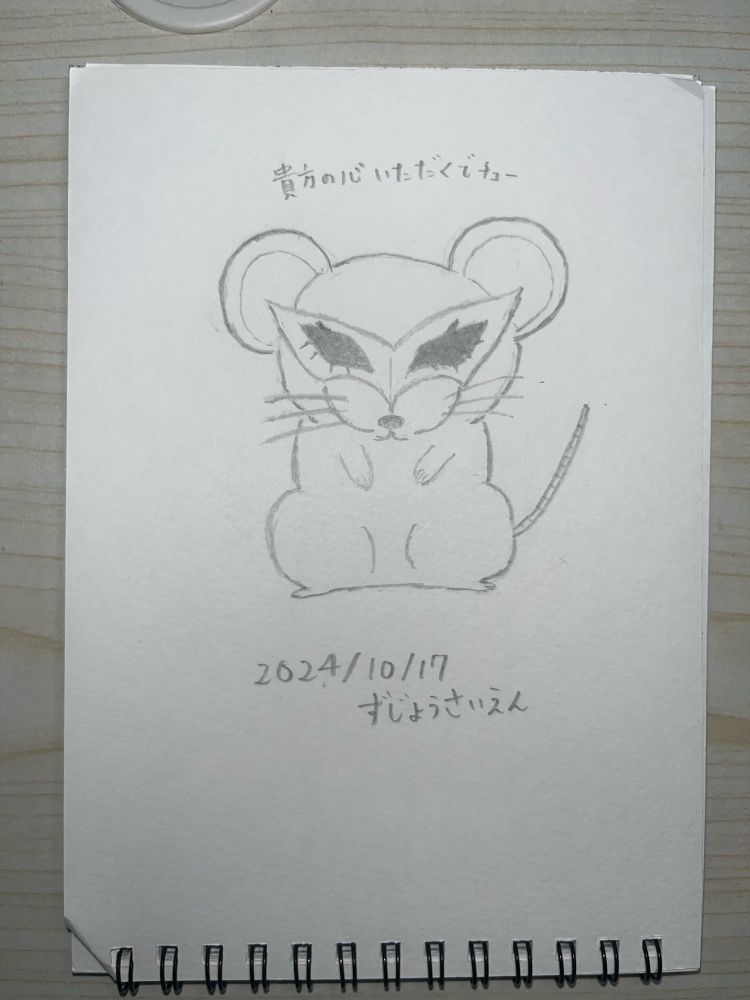 貴方の心いただくでチュー
2024/10/17
ずじょうさいえん